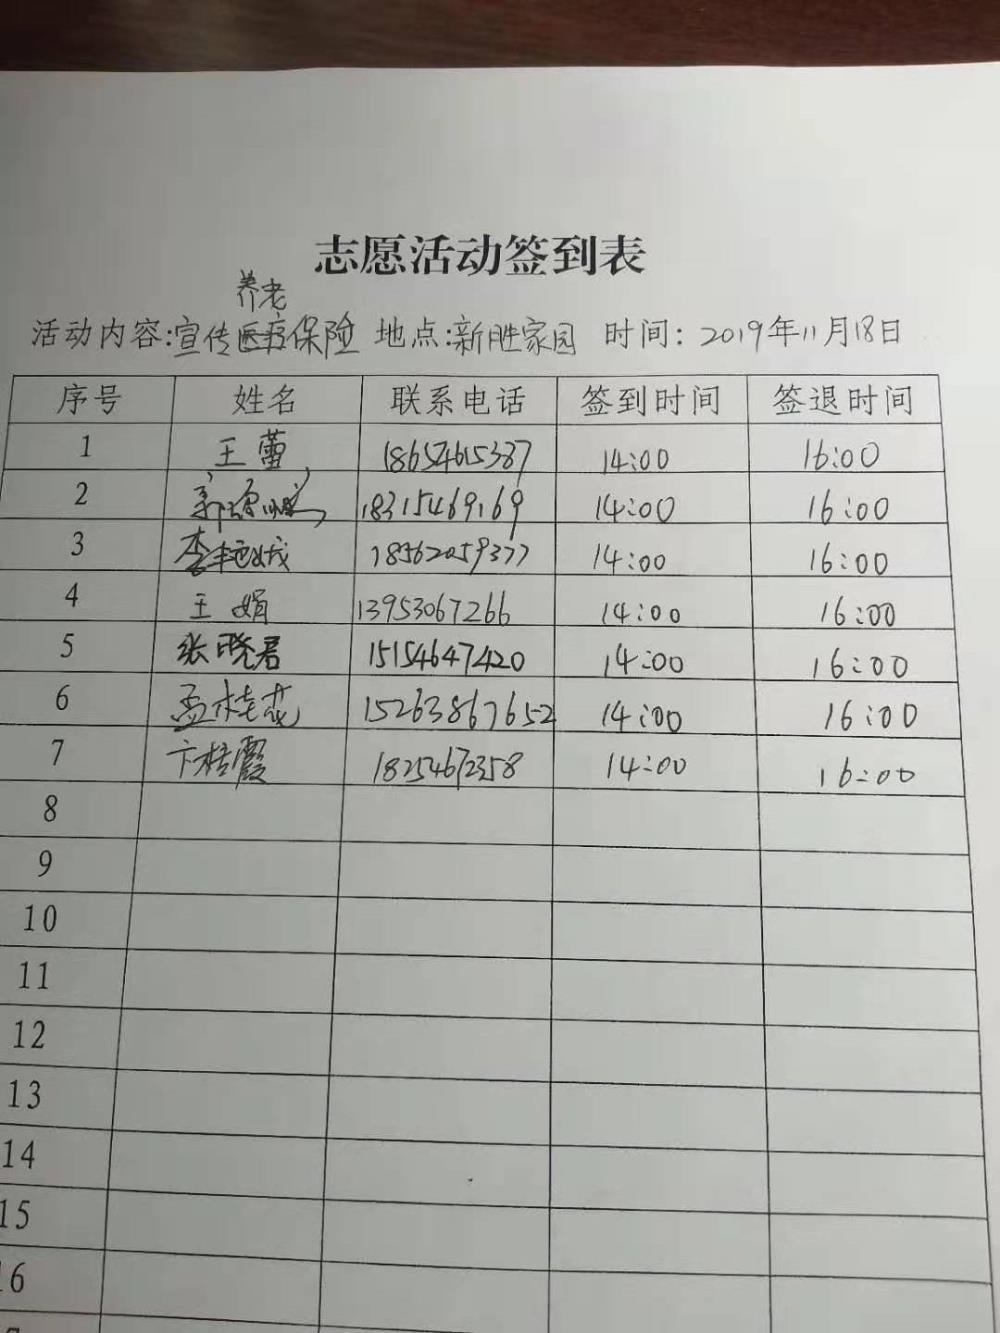 志愿活动签到表
养老
活动内容:宣传医疗保险 地点:新胜家园 时间: 2019年11月18日
序号 姓名 联系电话 签到时间 签退时间
1 王蕾 18654615387 14:00 16:00
2 18315469169 14:00 16:00
3 李艳娥 18562059377 14:00 16:00
4 王娟 13953067266 14:00 16:00
5 张晓君 15154647420 14:00 16:00
6 孟桂花 15263867652 14:00 16:00
7 卞桂霞 18254672358 14:00 16:00
8
9
10
11
12
13
14
15
16